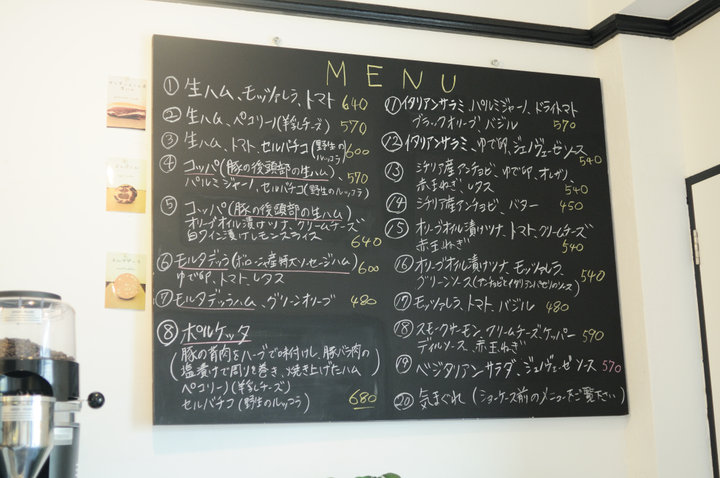 MENU
① 生ハム、モッツァレラ、トマト 640
② 生ハム、ペコリーノ(羊乳チーズ) 570
③ 生ハム、トマト、セルバチコ(野生のルッコラ) 600
④ コッパ(豚の後頭部の生ハム)、
パルミジャーノ、セルバチコ(野生のルッコラ) 570
⑤ コッパ(豚の後頭部の生ハム)
オリーブオイル漬けツナ、クリームチーズ
白ワイン漬けレモンスライス
640
⑥ モルタデッラ(ボローニャ産豚ソーセージハム)
ゆで卵、トマト、レタス 600
⑦ モルタデッラハム、グリーンオリーブ 480
⑧ ポルケッタ
(豚の背肉をハーブで味付けし、豚バラ肉の
塩漬けで周りを巻き、焼き上げたハム)
ペコリーノ(羊乳チーズ)
セルバチコ(野生のルッコラ) 680
⑪ イタリアンサラミ、パルミジャーノ、ドライトマト
ブラックオリーブ、バジル 570
⑫ イタリアンサラミ、ゆで卵、ジェノヴェーゼソース
540
⑬ シチリア産アンチョビ、ゆで卵、オレガノ、
赤玉ねぎ、レタス 540
⑭ シチリア産アンチョビ、バター 450
⑮ オリーブオイル漬けツナ、トマト、クリームチーズ
赤玉ねぎ 540
⑯ オリーブオイル漬けツナ、モッツァレラ、
グリーンソース(アンチョビとイタリアンパセリのソース) 540
⑰ モッツァレラ、トマト、バジル 480
⑱ スモークサーモン、クリームチーズ、ケッパー
ディルソース、赤玉ねぎ 590
⑲ ベジタリアンサラダ、ジェノヴェーゼソース 570
⑳ 気まぐれ(ショーケース前のメニューをご覧下さい)